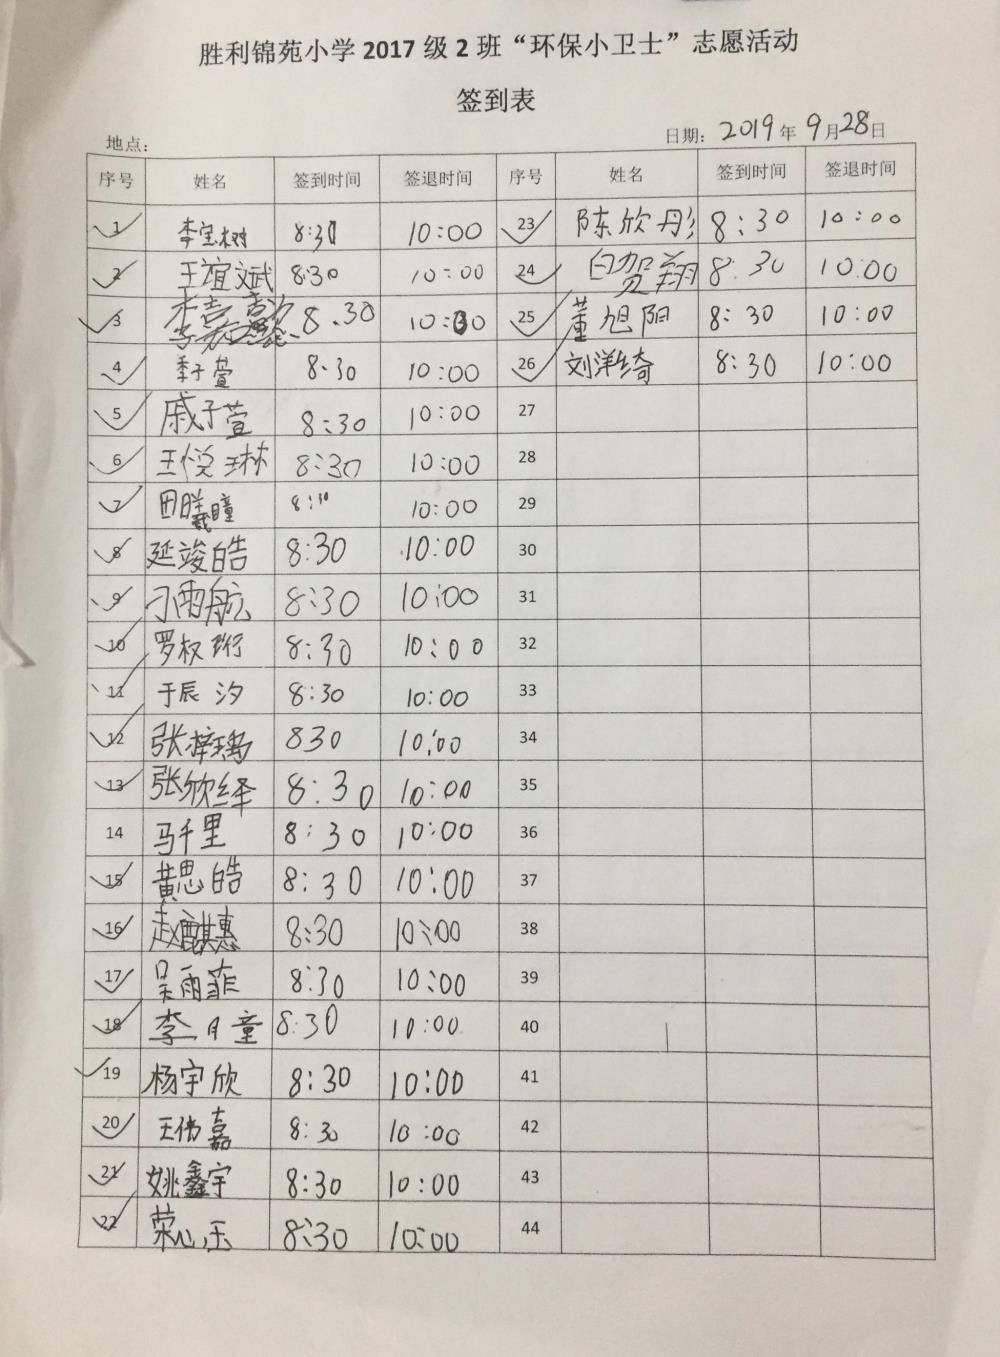 胜利锦苑小学2017级2班“环保小卫士”志愿活动
签到表
地点： 日期：2019年9月28日
序号 姓名 签到时间 签退时间 序号 姓名 签到时间 签退时间
1 李宝树 8:30 10:00 23 陈欣彤 8:30 10:00
2 王谊斌 8:30 10:00 24 白贺翔 8:30 10:00
3 8.30 10:00 25 董旭阳 8:30 10:00
4 李子萱 8.30 10:00 26 刘洋绮 8:30 10:00
5 戚子萱 8:30 10:00 27
6 王悦琳 8:30 10:00 28
7 田曦瞳 10:00 29
8 延竣皓 8:30 10:00 30
9 刁雨航 8:30 10:00 31
10 罗权珩 8:30 10:00 32
11 于辰汐 8:30 10:00 33
12 张梓瑀 830 10:00 34
13 张欣绎 8:30 10:00 35
14 马千里 8:30 10:00 36
15 黄思皓 8:30 10:00 37
16 赵麒惠 8:30 10:00 38
17 吴雨菲 8:30 10:00 39
18 李月童 8:30 10:00 40
19 杨宇欣 8:30 10:00 41
20 王伟嘉 8:30 10:00 42
21 姚鑫宇 8:30 10:00 43
22 荣心玉 8:30 10:00 44